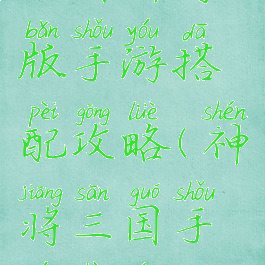 bǎn shǒu yóu dā
版手游搭
pèi gōng lüè shén
配攻略(神
jiāng sān guó shǒu
将三国手